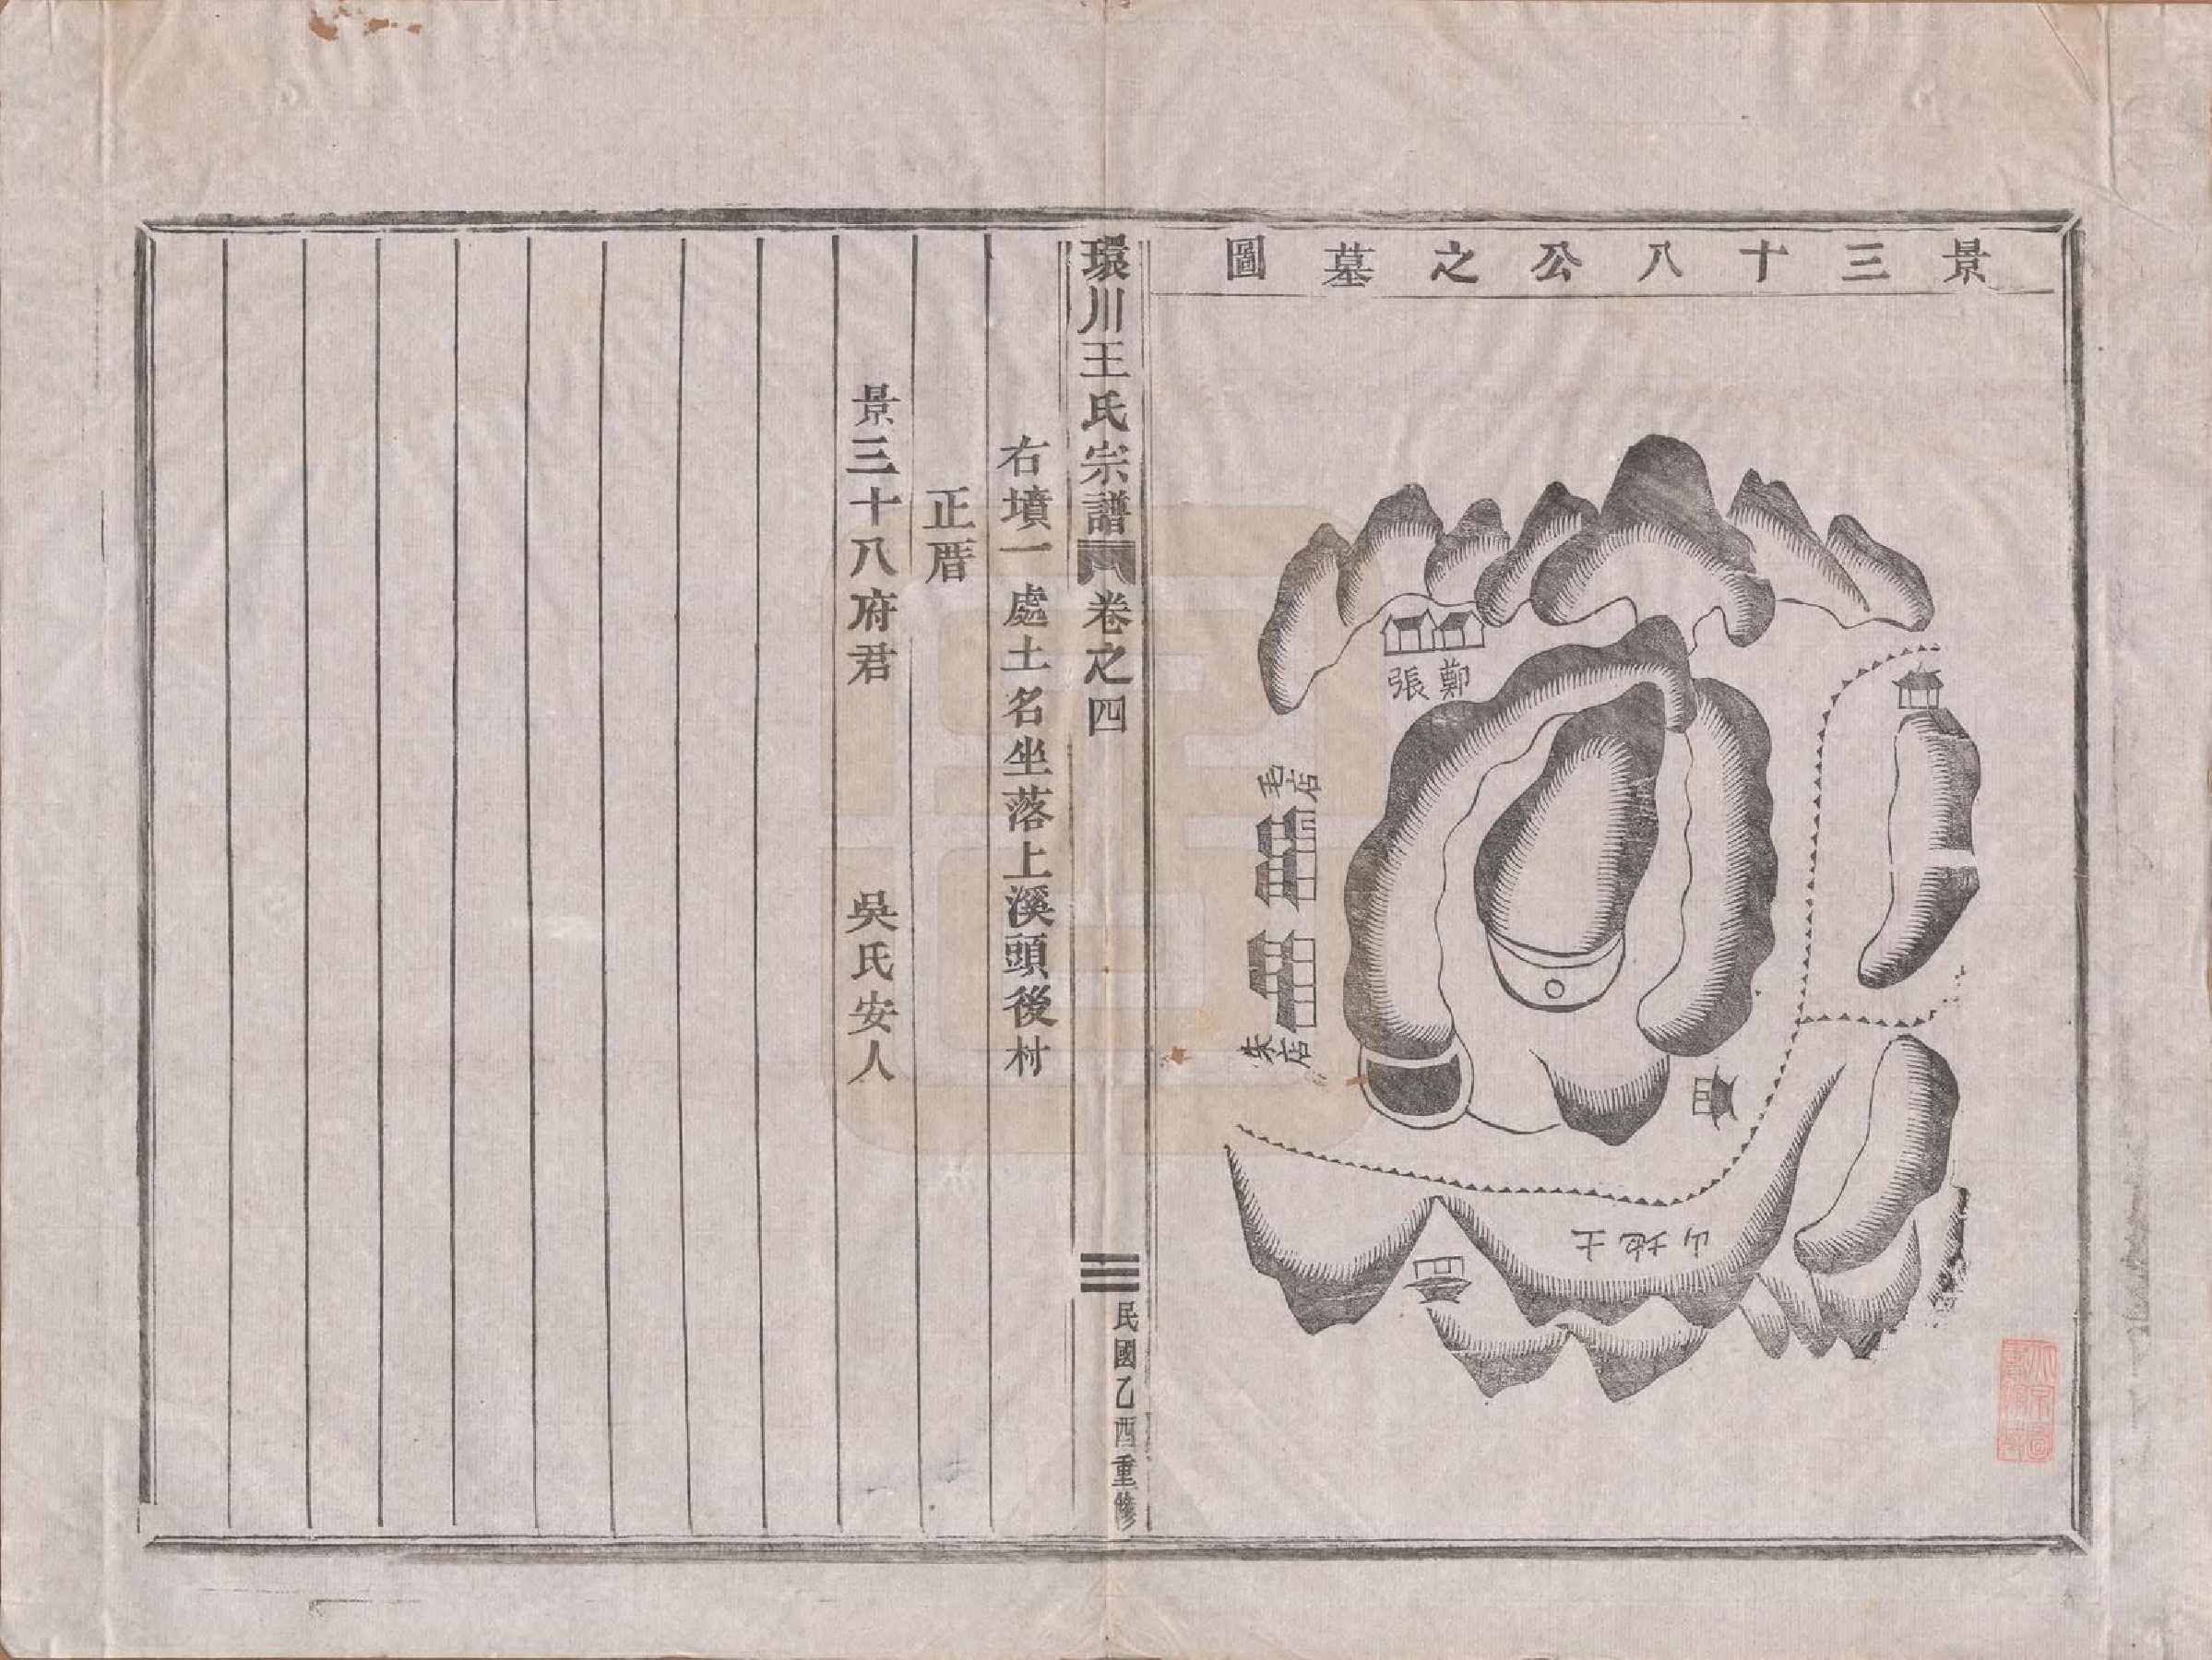 景三十八公之墓圖
鄭
張
毛店
朱店
土地山
環川王氏宗譜 卷之四
民國乙酉重修
右墳一處土名坐落上溪頭後村
正厝
景三十八府君 吳氏安人